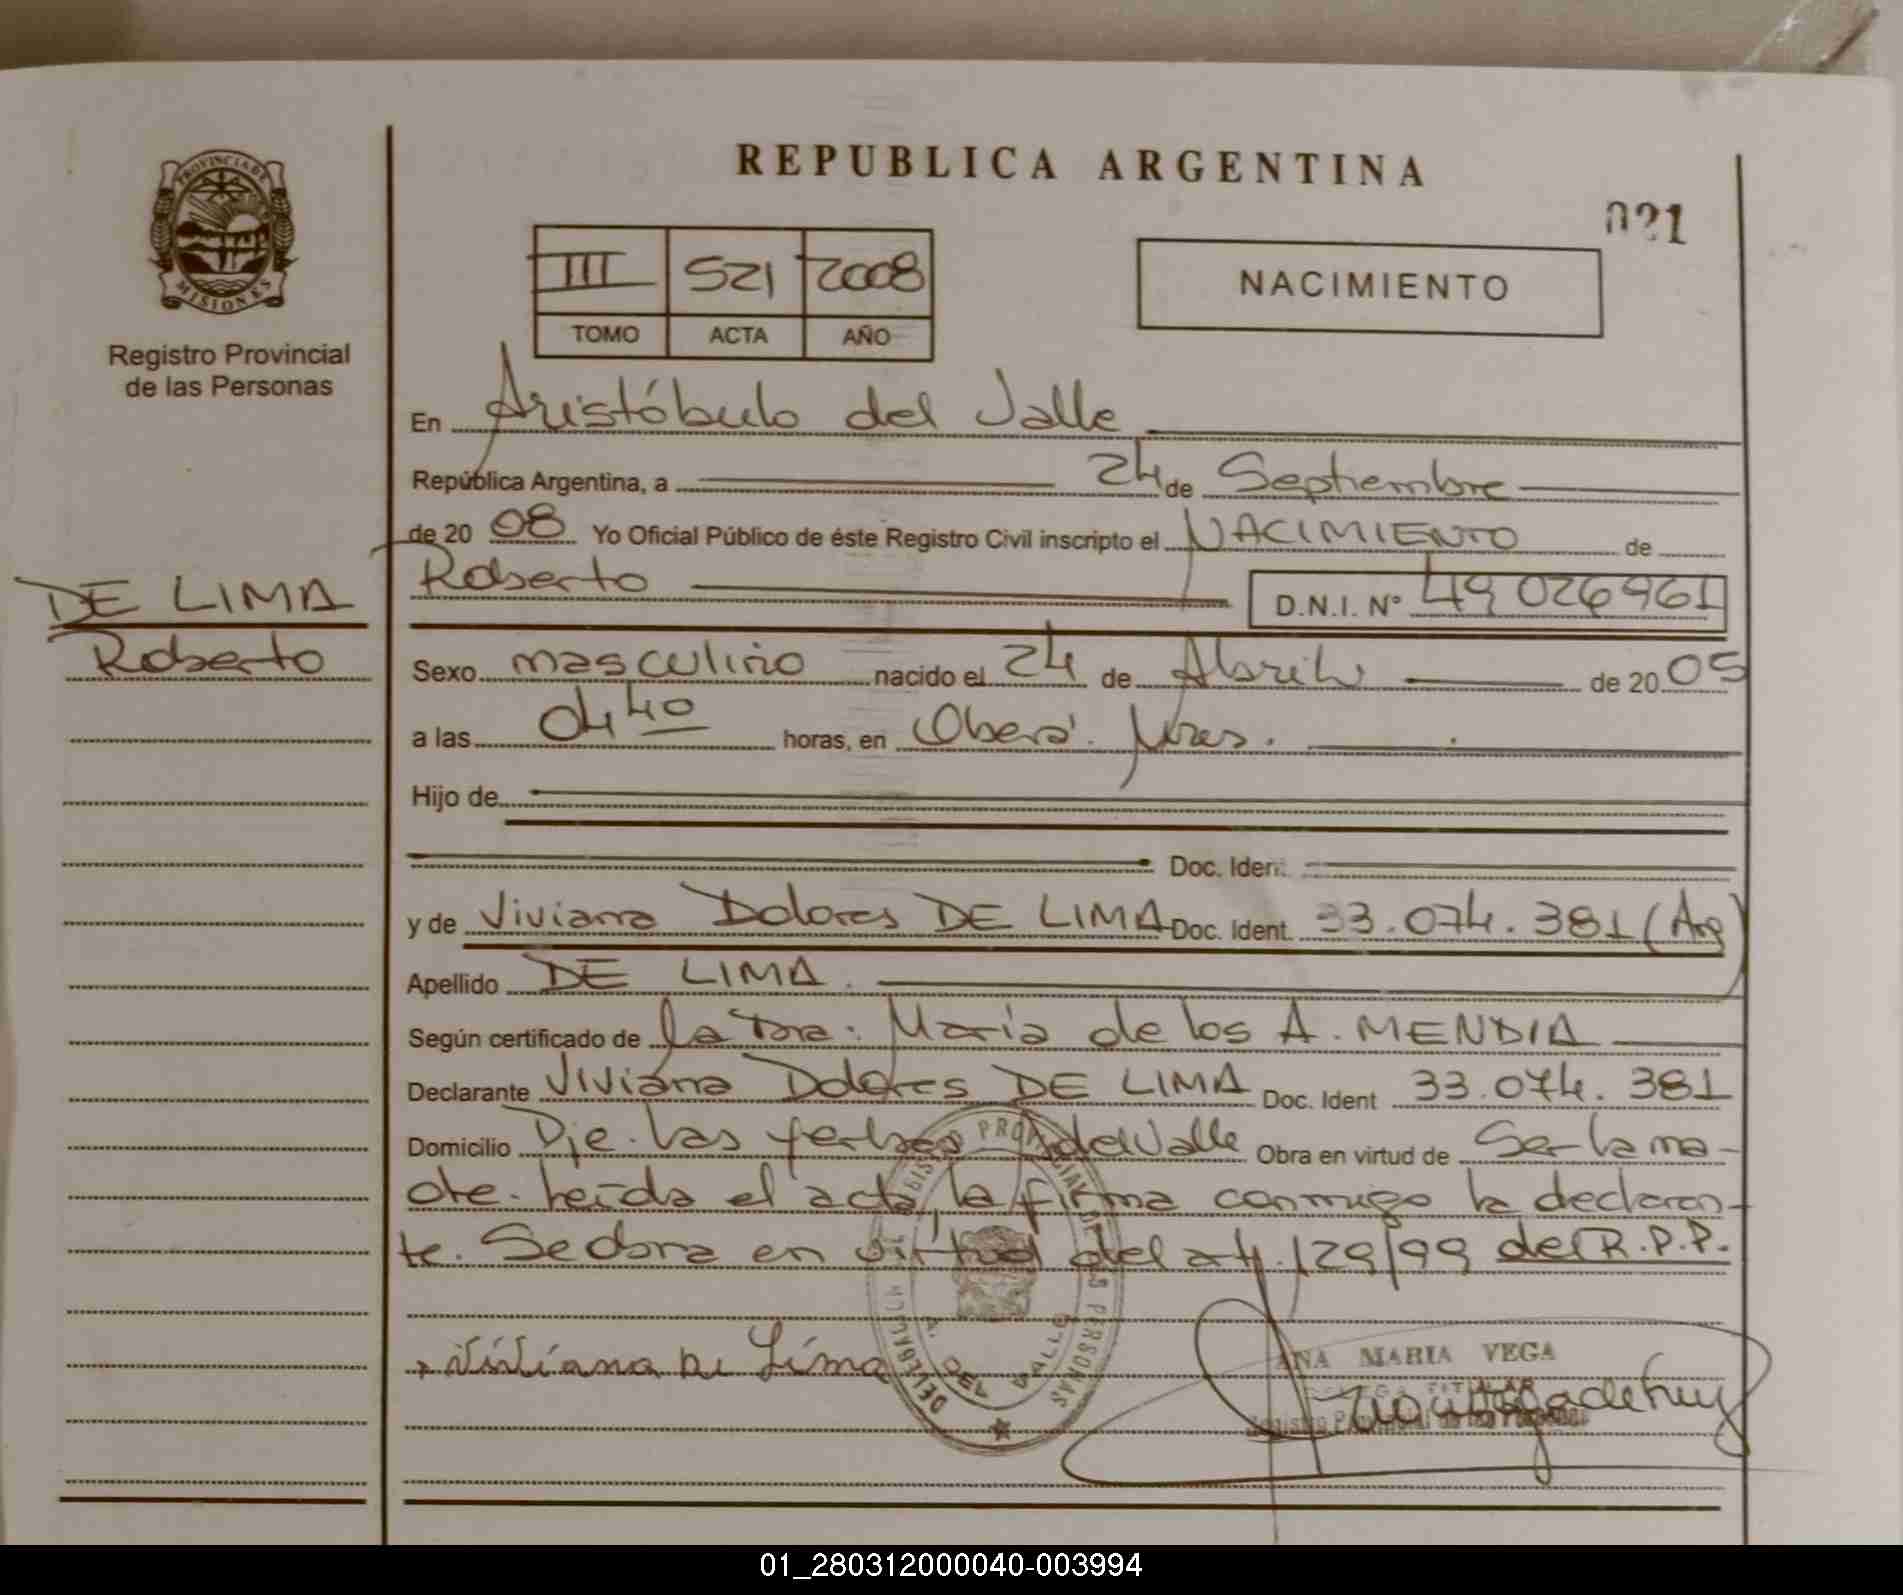 REPUBLICA ARGENTINA
021
PROVINCIA DE
MISIONES
Registro Provincial
de las Personas
III 521 2008
TOMO ACTA AÑO
NACIMIENTO
En Aristóbulo del Valle
República Argentina, a 24 de Septiembre
de 20 08 Yo Oficial Público de éste Registro Civil inscripto el NACIMIENTO de
Roberto D.N.I. Nº 49 026961
DE LIMA
Roberto
Sexo masculino nacido el 24 de Abril de 20 05
a las 04 40 horas, en Oberá. Mnes.
Hijo de
Doc. Ident.
y de Viviana Dolores DE LIMA Doc. Ident. 33.074.381 (Arg)
Apellido DE LIMA.
Según certificado de la Dra: María de los A. MENDIA
Declarante Viviana Dolores DE LIMA Doc. Ident 33.074.381
Domicilio Pje. Las Yerbas A del Valle Obra en virtud de Ser la ma-
dre. Leída el acta, la firma conmigo la declaran-
te. Se obra en virtud del art. 129/99 del R.P.P.
Viviana De Lima
DELEGACION
REGISTRO PROVINCIAL DE LAS PERSONAS
A. DEL VALLE
ANA MARIA VEGA
Registro Provincial de las Personas
01_280312000040-003994